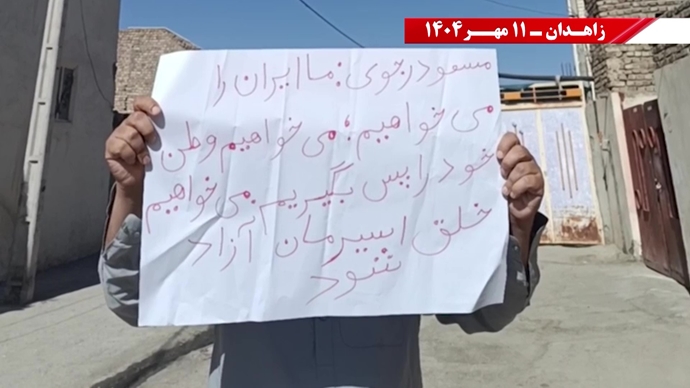 زاهـدان ــ ۱۱ مهـر ۱۴۰۴
مسعود رجوی: ما ایران را
می خواهیم؛ می خواهیم وطن
خود را پس بگیریم. می خواهیم
خلق اسیرمان آزاد
شود